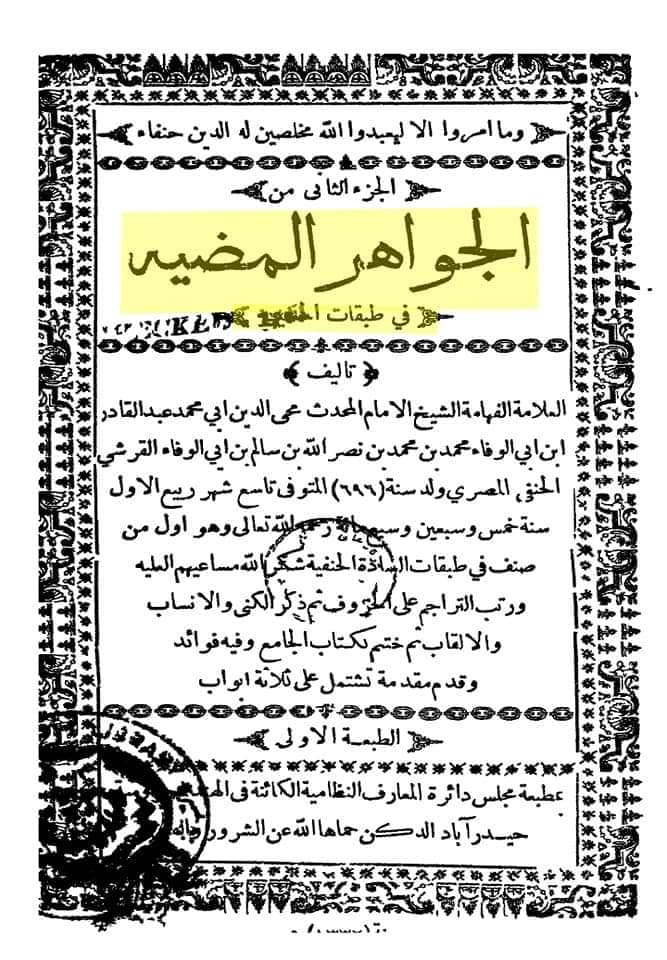 وما امروا الا ليعبدوا الله مخلصين له الدين حنفاء
الجزء الثانى من
الجواهر المضيه
في طبقات الحنفية
تاليف
العلامة الفهامة الشيخ الامام المحدث محى الدين ابي محمد عبد القادر
ابن ابي الوفاء محمد بن محمد بن نصر الله بن سالم بن ابي الوفاء القرشي
الحنفي المصري ولد سنة (٦٩٦) المتوفى تاسع شهر ربيع الاول
سنة خمس وسبعين وسبع مائة رحمه الله تعالى وهو اول من
صنف في طبقات السادة الحنفية شكر الله مساعيهم العليه
ورتب التراجم على الحروف ثم ذكر الكنى والانساب
والالقاب ثم ختم بكتاب الجامع وفيه فوائد
وقدم مقدمة تشتمل على ثلاثة ابواب
الطبعة الاولى
بمطبعة مجلس دائرة المعارف النظامية الكائنة في
حيدرآباد الدكن حماها الله عن الشرور